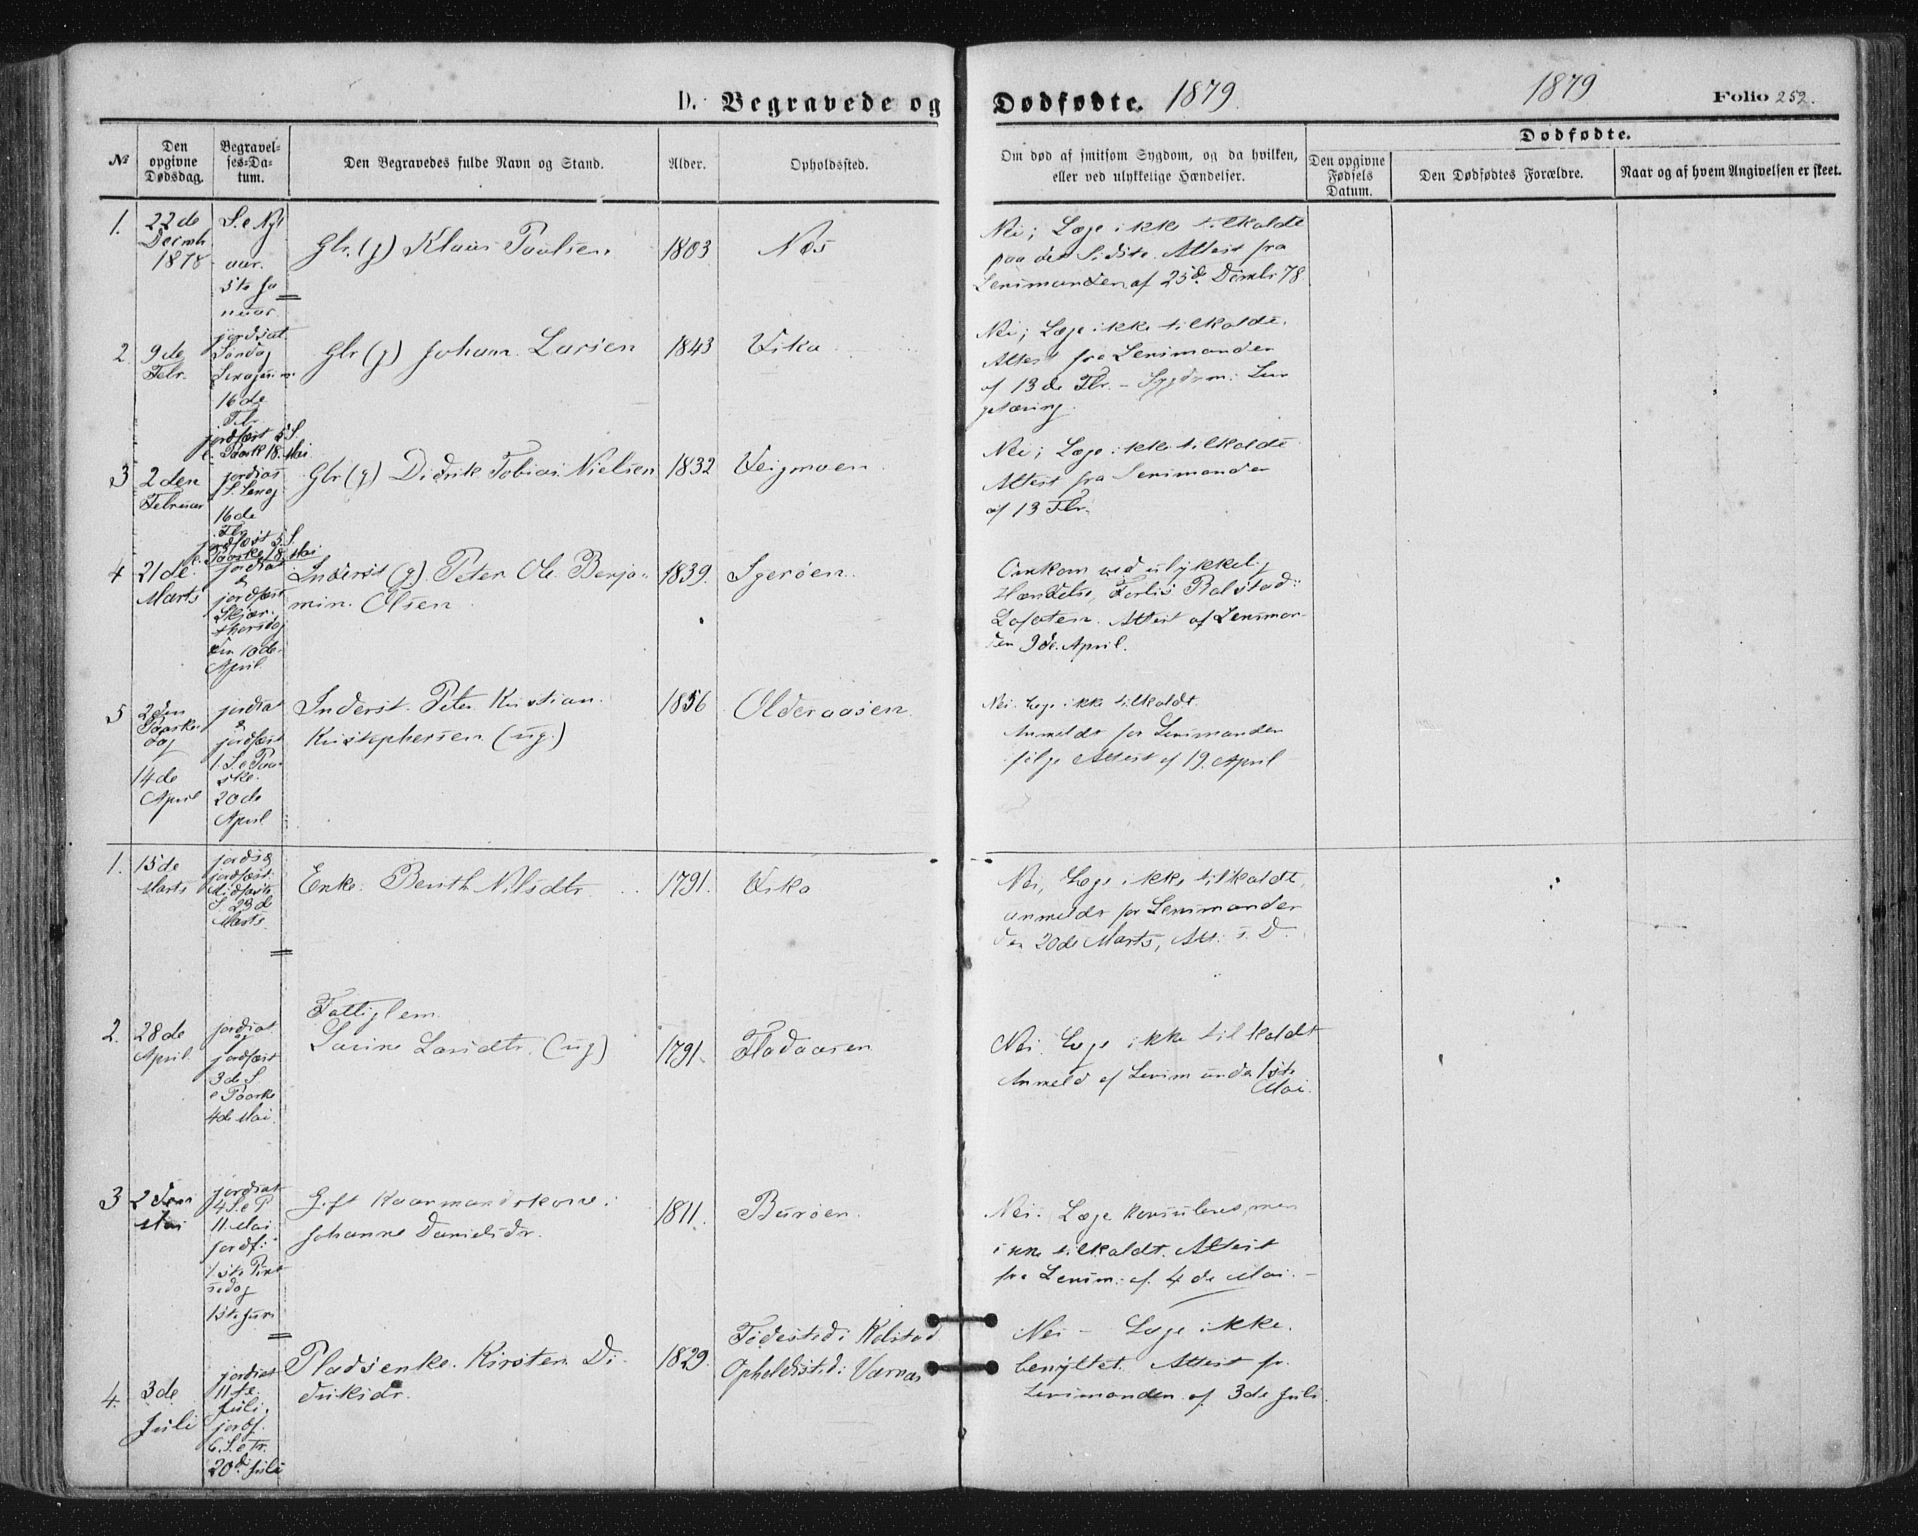 D. Begravede og Dødfødte. 1879. 1879 Folio 252.
№
Den opgivne Dødsdag.
Begravelses-Datum.
Den Begravedes fulde Navn og Stand.
Alder.
Opholdssted.
Om død af smitsom Sygdom, og da hvilken, eller ved ulykkelige Hændelser.
Dødfødte.
Den opgivne Fødsels Datum.
Den Dødfødtes Forældre.
Naar og af hvem Angivelsen er skeet.
1.
22de
1878
S. e Nyt
aar.
5te Ja
nuar.
Gbr. (g) Klaus Paulsen
1803
Næs
Nei; Læge ikke tilkaldt
paa det Sidste. Attest fra
Lensmanden af 25de Dcmbr 78
2.
9de
Febr.
jordsat
Søndag
16de
Fbr.
jordfæst 5 S.
e. Paask 18. Mai
Gbr (g) Johan Larsen
1843
Vika
Nei; Læge ikke tilkaldt.
Attest fra Lensmanden
af 13de Fbr. - Sygdom: Lun
getæring.
3
2den
Februar
jordsat
16de
Fbr.
jordfæst 5 S.
e. Paaske 18. Mai
Gbr (g) Didrik Tobias Nielsen
1832
Veigmoen
Nei; Læge ikke tilkaldt
Attest fra Lensmanden
af 13 Fbr.
4
21de
Marts
jordsat
&
jordfæst
Skjær
thorsdag
den 10de
April.
Inderst (g). Peter Ole Benja-
min. Olsen
1839.
Igerøen.
Omkom ved ulykkelig
Hændelse, Forlis Balstad:
Lofoten. Attest af Lensman-
den 9de April.
5
2den
Paaske
dag
14de
April
jordsat
&
jordfæst
1. S. e Paa
ske.
20de
April
Inderst. Peter Kristian
Kristophersen (ug.)
1856
Olderaasen
Nei. Læge ikke tilkaldt.
Anmeldt for Lensmanden
følge Attest af 19. April
1.
15de
Marts
jords &
jordfæst.
Midfaste
S. 23de
Marts.
Enke. Berith Nilsdtr.
1791.
Vika
Nei, Læge ikke tilkaldt,
anmeldt for Lensmanden
den 20de Marts, Att. s. D.
2.
28de
April.
jordsat
og
jordfæst
3de S
e Paaske
4de Mai
Fattiglem.
Larsdtr. (ug)
1791.
Fladaasen
Nei. Læge ikke tilkaldt
Anmeldt af Lensmanden 1ste
Mai.
3
2den
Mai
jordsat
4 S. e P
11. Mai
jordf:
1ste Pint
sedag
1ste Juni
Gift Kaarmandskone:
Johanne Danielsdr.
1811.
Burøen.
Nei. Læge konsuleres, men
ikke tilkaldt. Attest
fra Lensm. af. 4de Mai.
4.
3de
Juli
jordsat
11te
Juli,
jordf.
6. S. e Tr.
20de Juli
Pladsenke. Kirsten Di-
driksdr.
1829.
Fødested: Kolstad
Opholdssted: Værnæs
Nei - Læge ikke.
benyttet. Attest fr.
Lensmanden af 3de Juli.